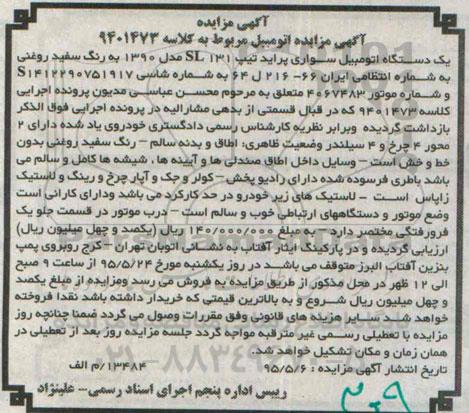 آگهی مزایده
آگهی مزایده اتومبیل مربوط به کلاسه ۹۴۰۱۴۷۳
یک دستگاه اتومبیل سواری پراید تیپ SL ۱۳۱ مدل ۱۳۹۰ به رنگ سفید روغنی
به شماره انتظامی ایران ۶۶- ۲۱۶ ل ۶۴ به شماره شاسی S۱۴۱۲۲۹۰۷۵۱۹۱۷
و شماره موتور ۴۰۶۷۴۸۳ متعلق به مرحوم محسن عباسی مدیون پرونده اجرایی
کلاسه ۹۴۰۱۴۷۳ که در قبال قسمتی از بدهی مشارالیه در پرونده اجرایی فوق الذکر
بازداشت گردیده وبرابر نظریه کارشناس رسمی دادگستری خودروی یاد شده دارای ۲
محور ۴ چرخ و ۴ سیلندر وضعیت ظاهری: اطاق و بدنه سالم – رنگ سفید روغنی بدون
خط و خش است – وسایل داخل اطاق صندلی ها و آیینه ها ، شیشه ها کامل و سالم می
باشد باطری فرسوده شده دارای رادیو پخش – کولر و جک و آپار چرخ و رینگ و لاستیک
زاپاس است – لاستیک های زیر خودرو در حد کارکرد می باشد ودارای کارائی است
وضع موتور و دستگاههای ارتباطی خوب و سالم است – درب موتور در قسمت جلو یک
فرورفتگی مختصر دارد – به مبلغ ۱۴۰/۰۰۰/۰۰۰ ریال (یکصد و چهل میلیون ریال)
ارزیابی گردیده و در پارکینگ ایثار آفتاب به نشانی اتوبان تهران – کرج روبروی پمپ
بنزین آفتاب البرز متوقف می باشد در روز یکشنبه مورخ ۹۵/۵/۲۴ از ساعت ۹ صبح
الی ۱۲ ظهر در محل مذکور از طریق مزایده به فروش می رسد ومزایده از مبلغ یکصد
و چهل میلیون ریال شروع و به بالاترین قیمتی که خریدار داشته باشد نقدا فروخته
خواهد شد سایر هزینه های قانونی وفق مقررات وصول می گردد ضمنا چنانچه روز
مزایده با تعطیلی رسمی غیر مترقبه مواجه گردد جلسه مزایده روز بعد از تعطیلی در
همان زمان و مکان تشکیل خواهد شد.
تاریخ انتشار آگهی مزایده : ۹۵/۵/۶
۱۳۴۸۴/م الف
رییس اداره پنجم اجرای اسناد رسمی– علینژاد
۳۰۹